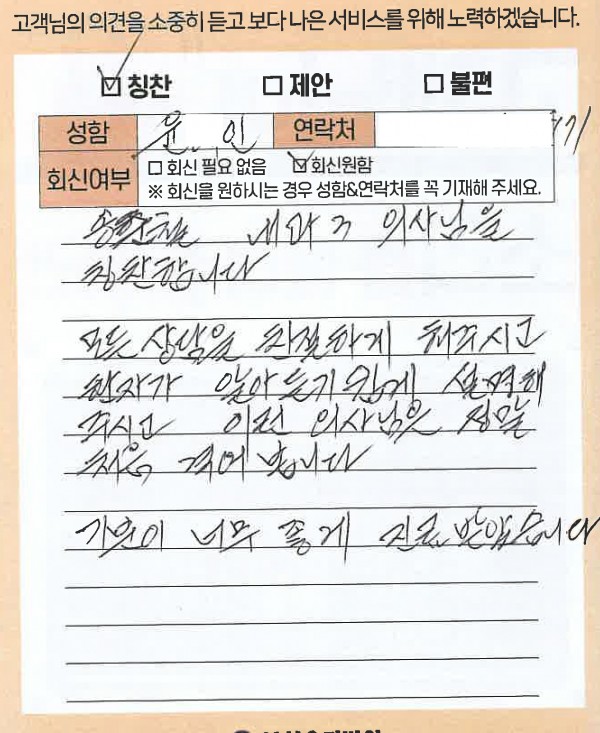 고객님의 의견을 소중히 듣고 보다 나은 서비스를 위해 노력하겠습니다.
☑ 칭찬 ☐ 제안 ☐ 불편
성함 윤 인 연락처 71
회신여부 ☐ 회신 필요 없음 ☑ 회신원함
※ 회신을 원하시는 경우 성함&연락처를 꼭 기재해 주세요.
내과 의사님을
칭찬합니다
모든 상담을 친절하게 해주시고
환자가 알아 듣기 쉽게 설명해
주시고 이런 의사님은 정말
처음 격어 봅니다
기분이 너무 좋게 진료 받았습니다